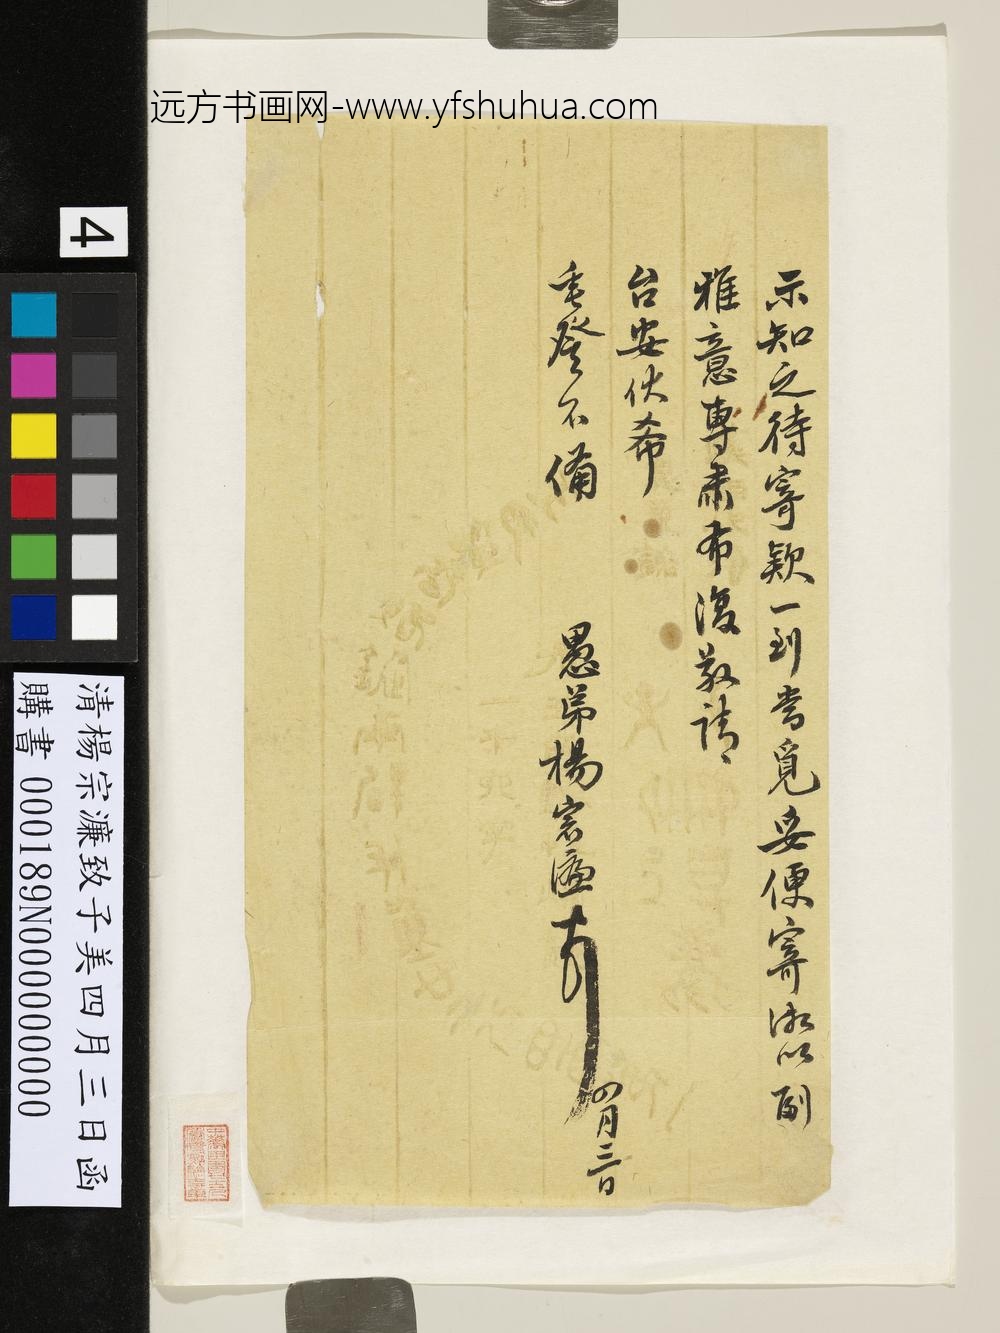 远方书画网-www.yfshuhua.com
示知之待寄款一到當覓妥便寄湘以副
雅意專肅布復敬請
台安伏希
垂詧不備
愚弟楊宗濂頓
四月三日
4
清楊宗濂致子美四月三日函
購書 000189N000000000